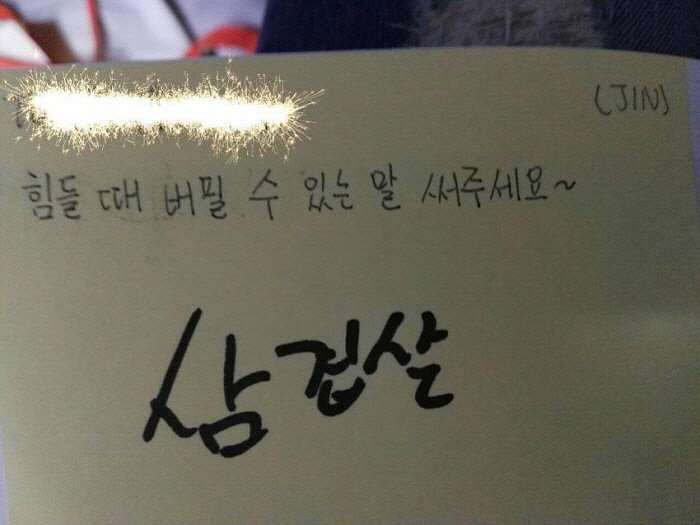 (JIN)
힘들 때 버필 수 있는 말 써주세요~
삼겹살